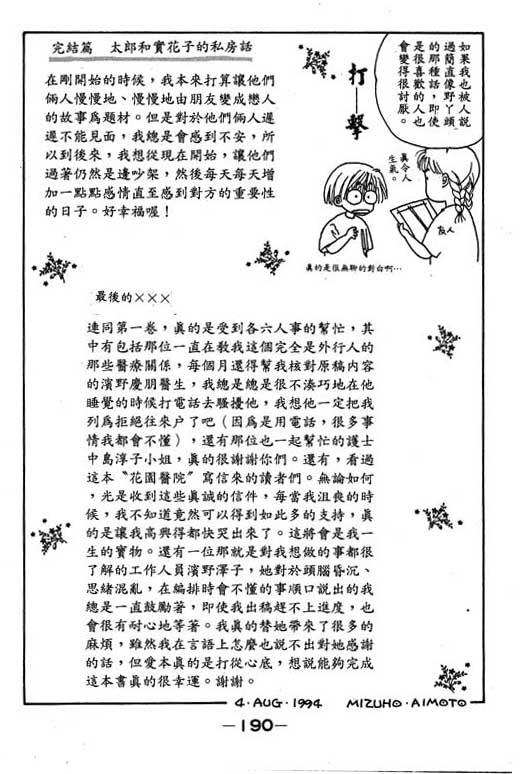 完結篇　太郎和實花子的私房話
在剛開始的時候，我本來打算讓他們
倆人慢慢地、慢慢地由朋友變成戀人
的故事爲題材。但是對於他們倆人遲
遲不能見面，我總是會感到不安，所
以到後來，我想從現在開始，讓他們
過著仍然是邊吵架，然後每天每天增
加一點點感情直至感到對方的重要性
的日子。好幸福喔！
如果我也被人說
過簡直像野丫頭
的那種話，即使
是很喜歡的人也
會變得很討厭。
打—擊
眞令人
生氣。
友人
眞的是很無聊的對白啊…
最後的×××
連同第一卷，眞的是受到各六人事的幫忙，其
中有包括那位一直在教我這個完全是外行人的
那些醫療關係，每個月還得幫我核對原稿內容
的濱野慶朋醫生，我總是總是很不湊巧地在他
睡覺的時候打電話去騷擾他，我想他一定把我
列爲拒絕往來户了吧（因爲是用電話，很多事
情我都會不懂），還有那位也一起幫忙的護士
中島淳子小姐，眞的很謝謝你們。還有，看過
這本〝花園醫院〞寫信來的讀者們。無論如何
，光是收到這些眞誠的信件，每當我沮喪的時
候，我不知道竟然可以得到如此多的支持，眞
的是讓我高興得都快哭出來了。這將會是我一
生的寶物。還有一位那就是對我想做的事都很
了解的工作人員濱野澤子，她對於頭腦昏沉、
思緒混亂，在編排時會不懂的事順口說出的我
總是一直鼓勵著，即使我出稿趕不上進度，也
會很有耐心地等著。我眞的替她帶來了很多的
麻煩，雖然我在言語上怎麼也說不出對她感謝
的話，但愛本眞的是打從心底，想說能夠完成
這本書眞的很幸運。謝謝。
4・AUG・1994　MIZUHO・AIMOTO
—190—